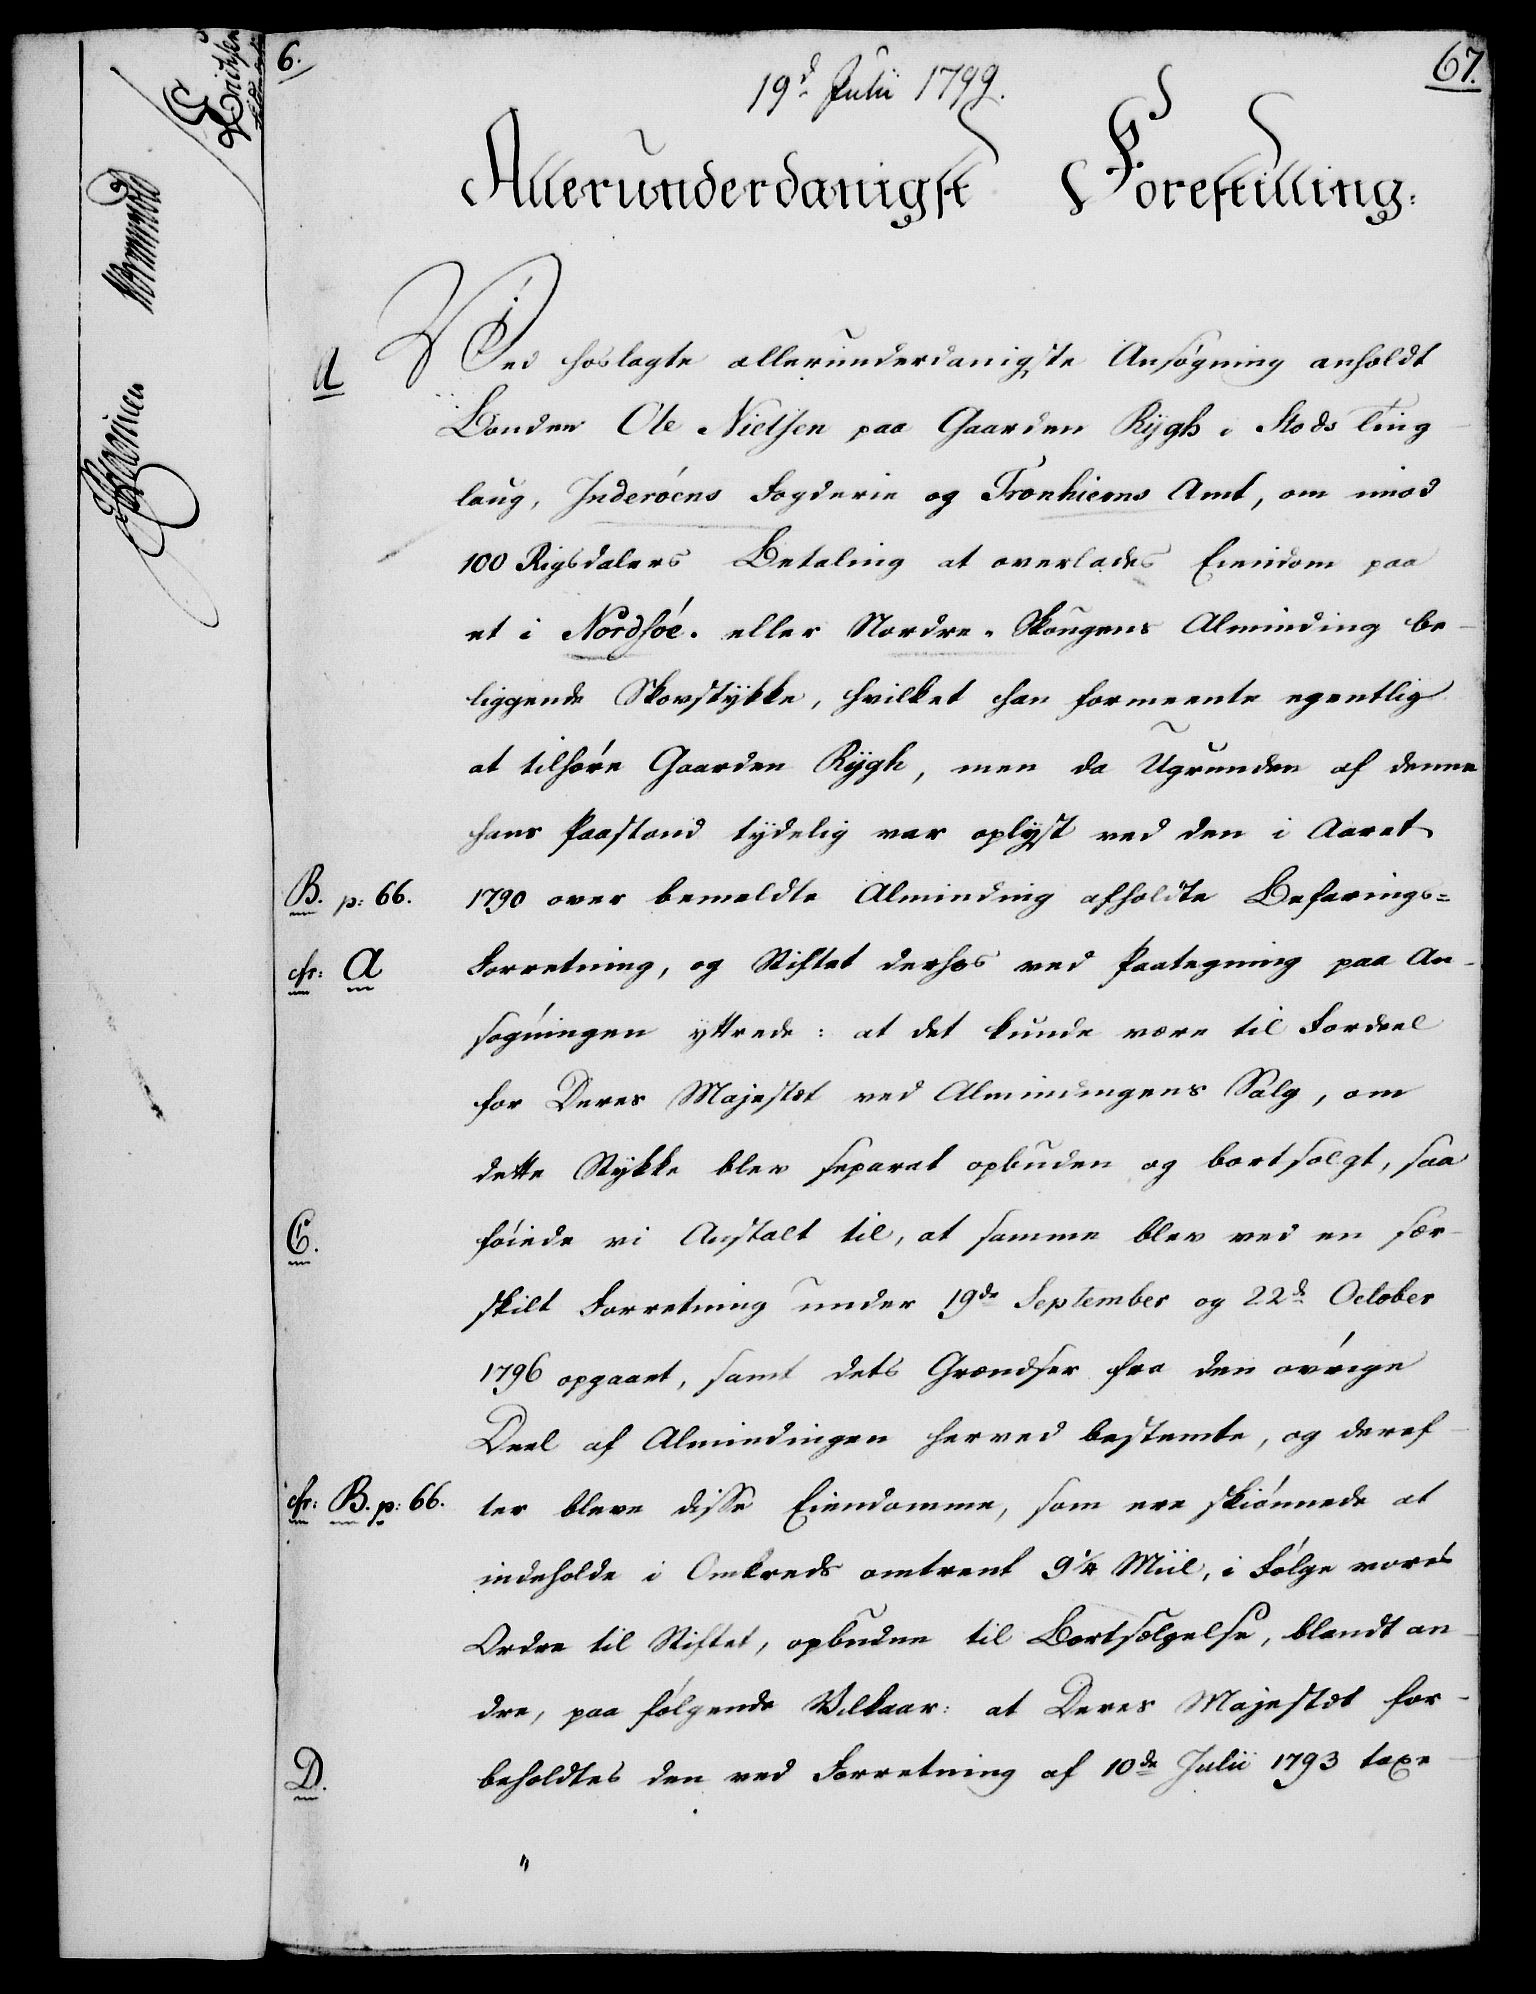 6.
67.
19d Julii 1799.
Allerunderdanigst Forestilling:
A
Ved hoslagte allerunderdanigste Ansøgning anholdt
Bonden Ole Nielsen paa Gaarden Rÿgh i Stods Ting-
laug, Inderöens Fogderie og Tronhiems Amt, om imod
100 Rigsdalers Betaling at overlades Eiendom paa
et i Nordsöe- eller Nordre-Skougens Alminding be-
liggende Skovstÿkke, hvilket han formeente egentlig
at tilhöre Gaarden Rÿgh, men da Ugrunden af denne
hans Paastand tÿdelig var oplÿst ved den i Aaret
B. p: 66. 1790 over bemeldte Alminding afholdte Befarings=
cfr: A Forretning, og Stiftet derhos ved Paategning paa An-
søgningen ÿttrede: at det kunde være til Fordeel
for Deres Majestæt ved Almindingens Salg, om
dette Stÿkke blev separat opbuden og bortsolgt, saa
C. föiede vi Anstalt til, at samme blev ved en sær-
skilt Forretning under 19de September og 22d October
1796 opgaaet, samt dets Grændser fra den övrige
Deel af Almindingen herved bestemte, og deref-
cfr: B. p: 66. ter bleve disse Eiendomme, som ere skiönnede at
indeholde i Omkreds omtrent 9¼ Miil, i Fölge vores
Ordre til Stiftet, opbudne til Bortsælgelse, blandt an-
dre, paa fölgende Vilkaar: at Deres Majestæt for-
D. beholdtes den ved Forretning af 10de Julii 1793 taxe-
"